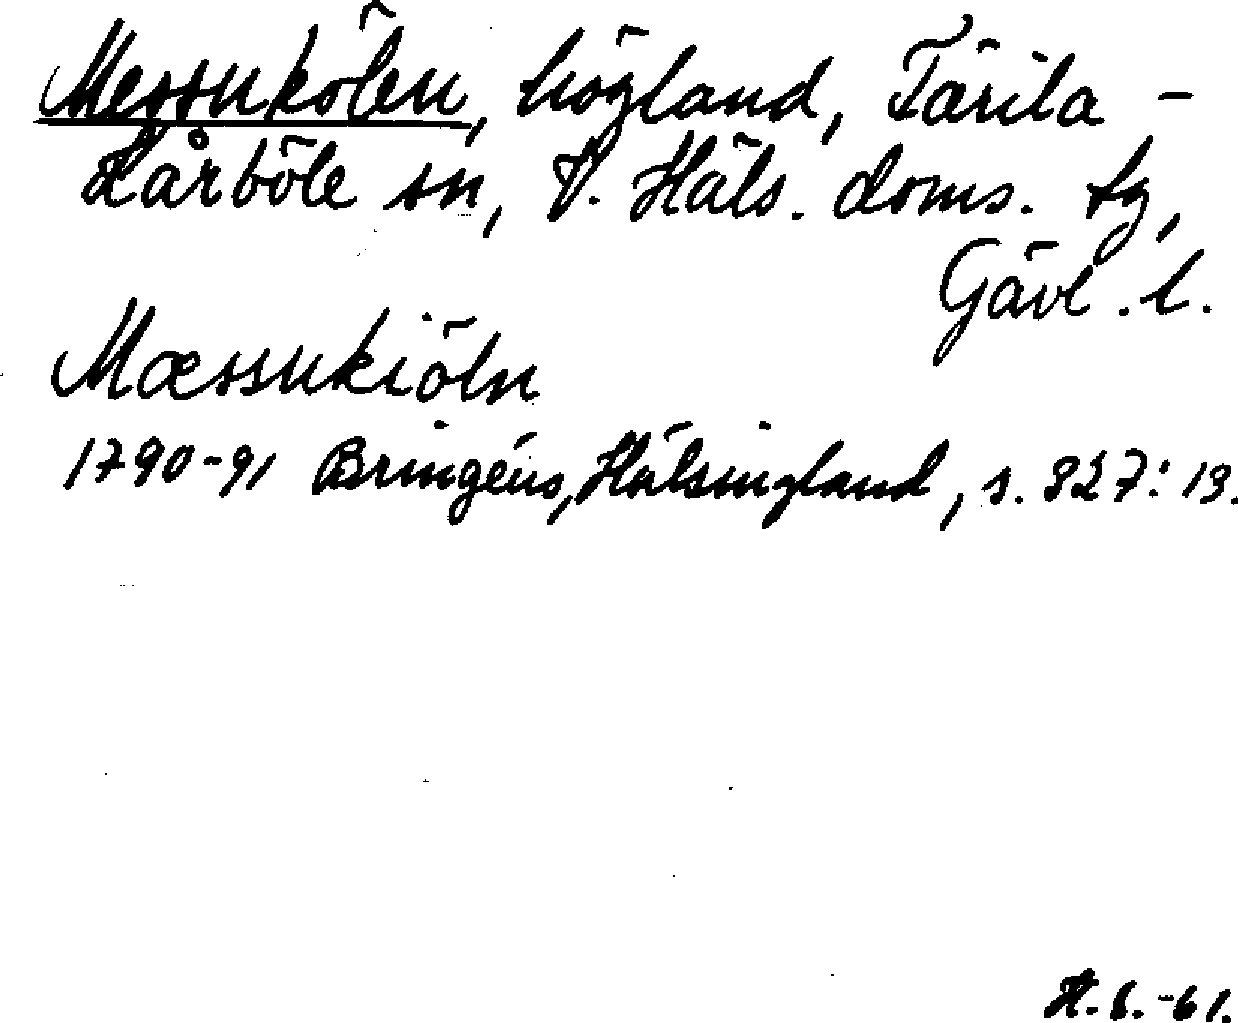 Messukölen, högland, Färila -
Kårböle sn, V. Häls. doms. tg,
Gävl. l.
Mæssukiöln
1790-91 Bringéus, Hälsingland, s. 327: 13.
H.S.-61.